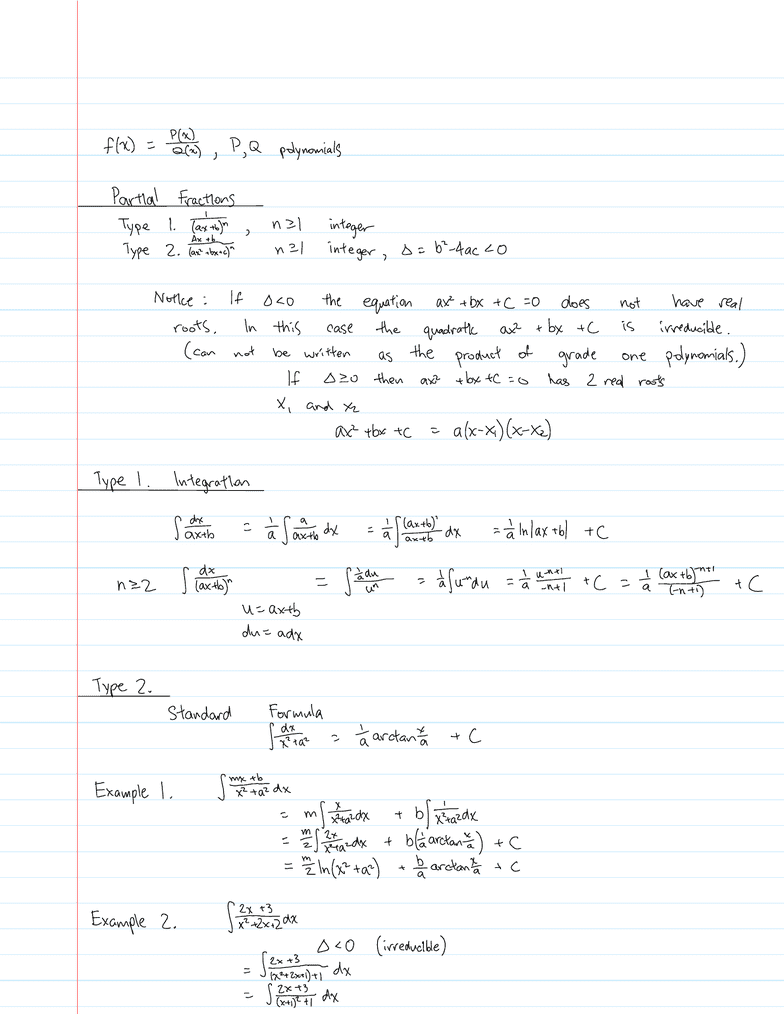 f(x) = P(x)/Q(x) , P,Q polynomials
Partial Fractions
Type 1. 1/(ax+b)ⁿ , n≥1 integer
Type 2. (Ax+b)/(ax²+bx+c)ⁿ n≥1 integer, Δ = b²-4ac <0
Notice: If Δ<0 the equation ax² +bx +C =0 does not have real
roots. In this case the quadratic ax² +bx +C is irreducible.
(can not be written as the product of grade one polynomials.)
If Δ≥0 then ax² +bx +C =0 has 2 real roots
X₁ and x₂
ax² +bx +C = a(x-X₁)(x-X₂)
Type 1. Integration
∫ dx/(ax+b) = 1/a ∫ a/(ax+b) dx = 1/a ∫ (ax+b)'/(ax+b) dx = 1/a ln|ax+b| + C
n≥2 ∫ dx/(ax+b)ⁿ = ∫ (1/a du)/uⁿ = 1/a ∫ u⁻ⁿ du = 1/a u⁻ⁿ⁺¹/(-n+1) + C = 1/a (ax+b)⁻ⁿ⁺¹/(-n+1) + C
u = ax+b
du = adx
Type 2.
Standard Formula
∫ dx/(x²+a²) = 1/a arctan x/a + C
Example 1. ∫ (mx+b)/(x²+a²) dx
= m∫ x/(x²+a²) dx + b∫ 1/(x²+a²) dx
= m/2 ∫ 2x/(x²+a²) dx + b(1/a arctan x/a) + C
= m/2 ln(x²+a²) + b/a arctan x/a + C
Example 2. ∫ (2x+3)/(x²+2x+2) dx
Δ<0 (irreducible)
= ∫ (2x+3)/((x²+2x+1)+1) dx
= ∫ (2x+3)/((x+1)²+1) dx